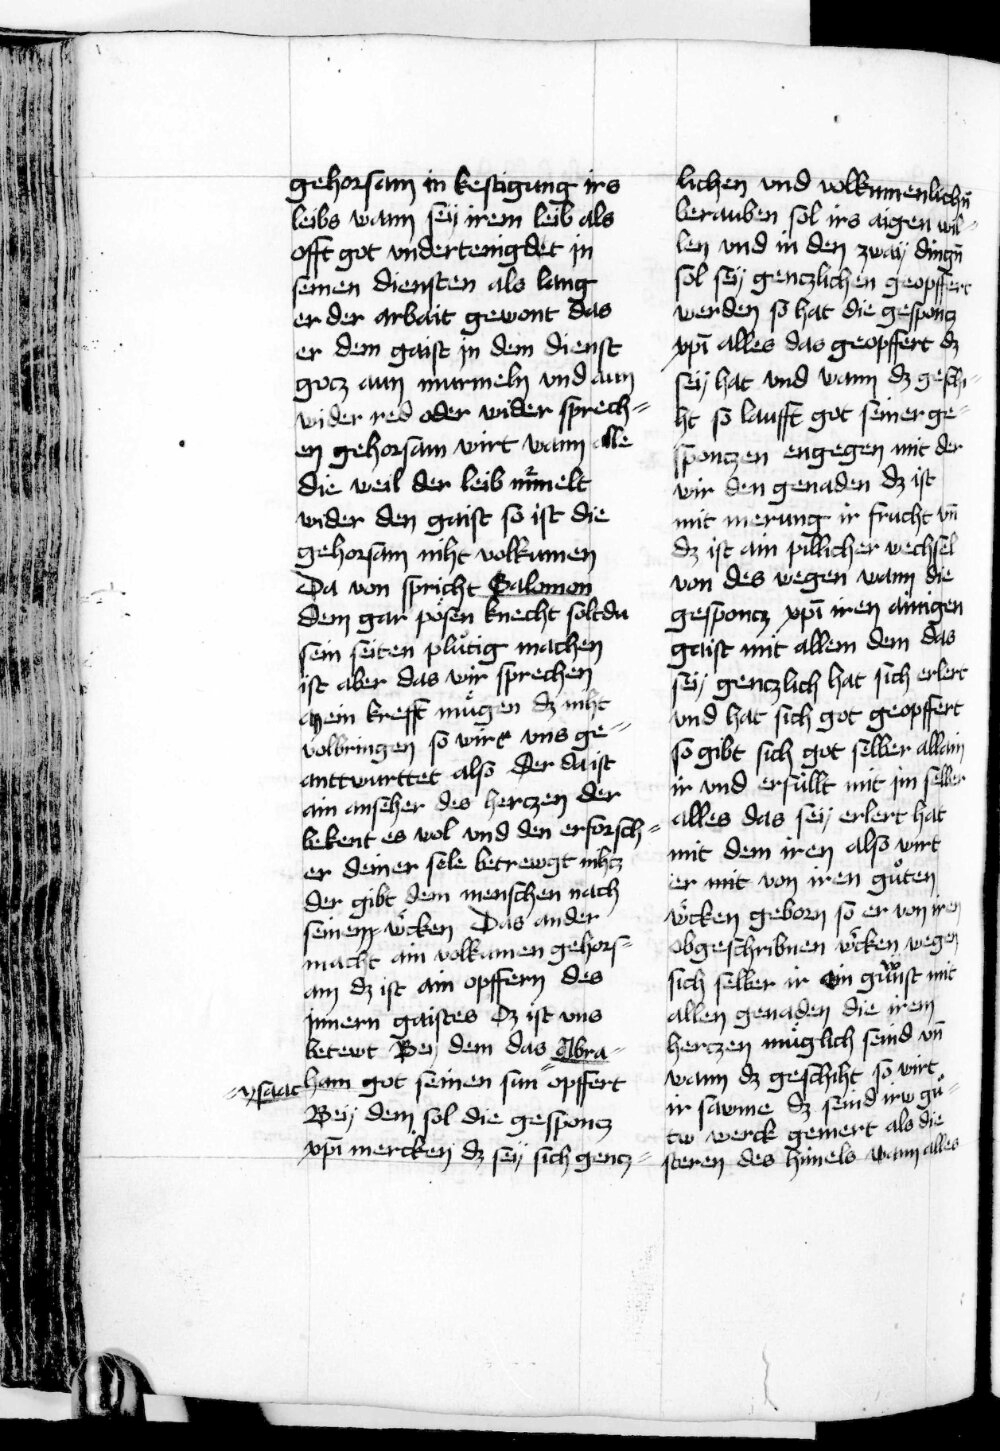 gehorsam in kestigung irs
leibs wann seÿ irem leib als
offt got vndertenigdet in
seinen diensten als lang
er der arbait gewont das
er dem gaist jn dem dienst
gocz aun murmeln vnd aun
wider red oder wider sprech=
en gehorsam wirt wann alle
die weil der leib murmelt
wider den gaist so ist die
gehorsam niht volkumen
Da von spricht Salomon
dem gar pösen knecht soltdu
sein seiten plůtig machen
ist aber das wir sprechen
Mein krefft mügen dz niht
volbringen so wirt vns ge=
anttwurttet also Der da ist
ain anseher des herczen der
bekent es wol vnd den erforsch=
er deiner sele betrewgt nihcz
der gibt dem menschen nach
seinem wercken Das ander
macht ain volkumen gehors=
am dz ist ain opffern des
jnnern gaistes Dz ist vns
betewt Beÿ dem das Abra=
ham got seinen sun opffert
=ysaac
Beÿ dem sol die gesponcz
xpi mercken dz seÿ sich gencz=
lichen vnd volkumenlichn̄
berauben sol irs aigen wil=
len vnd in den zwaÿ dingn̄
sol seÿ genczlichen geopffert
werden so hat die gesponcz
xpi alles das geopffert dz
seÿ hat vnd wann dz geschi=
ht so laufft got seiner ge=
sponczen engegen mit der
wir den genaden dz ist
mit merung ir frucht vn̄
dz ist ain pillicher wechsel
von des wegen wann die
gesponcz xpi iren ainigen
gaist mit allem dem das
seÿ genczlich hat sich erlert
vnd hat sich got geopffert
so gibt sich got selber allain
ir vnd erfüllt mit jm selber
alles das seÿ erlert hat
mit dem iren also wirt
er mit von iren gůten
wercken geborn so er von iren
obgeschribnen wercken wegen
sich selber ir ein gůnst mit
allen genaden die irem
herczen müglich seind vn̄
wann dz geschiht so wirt
ir sawme dz seind irw gů=
tw werck gemert als die
steren des himels wann alles